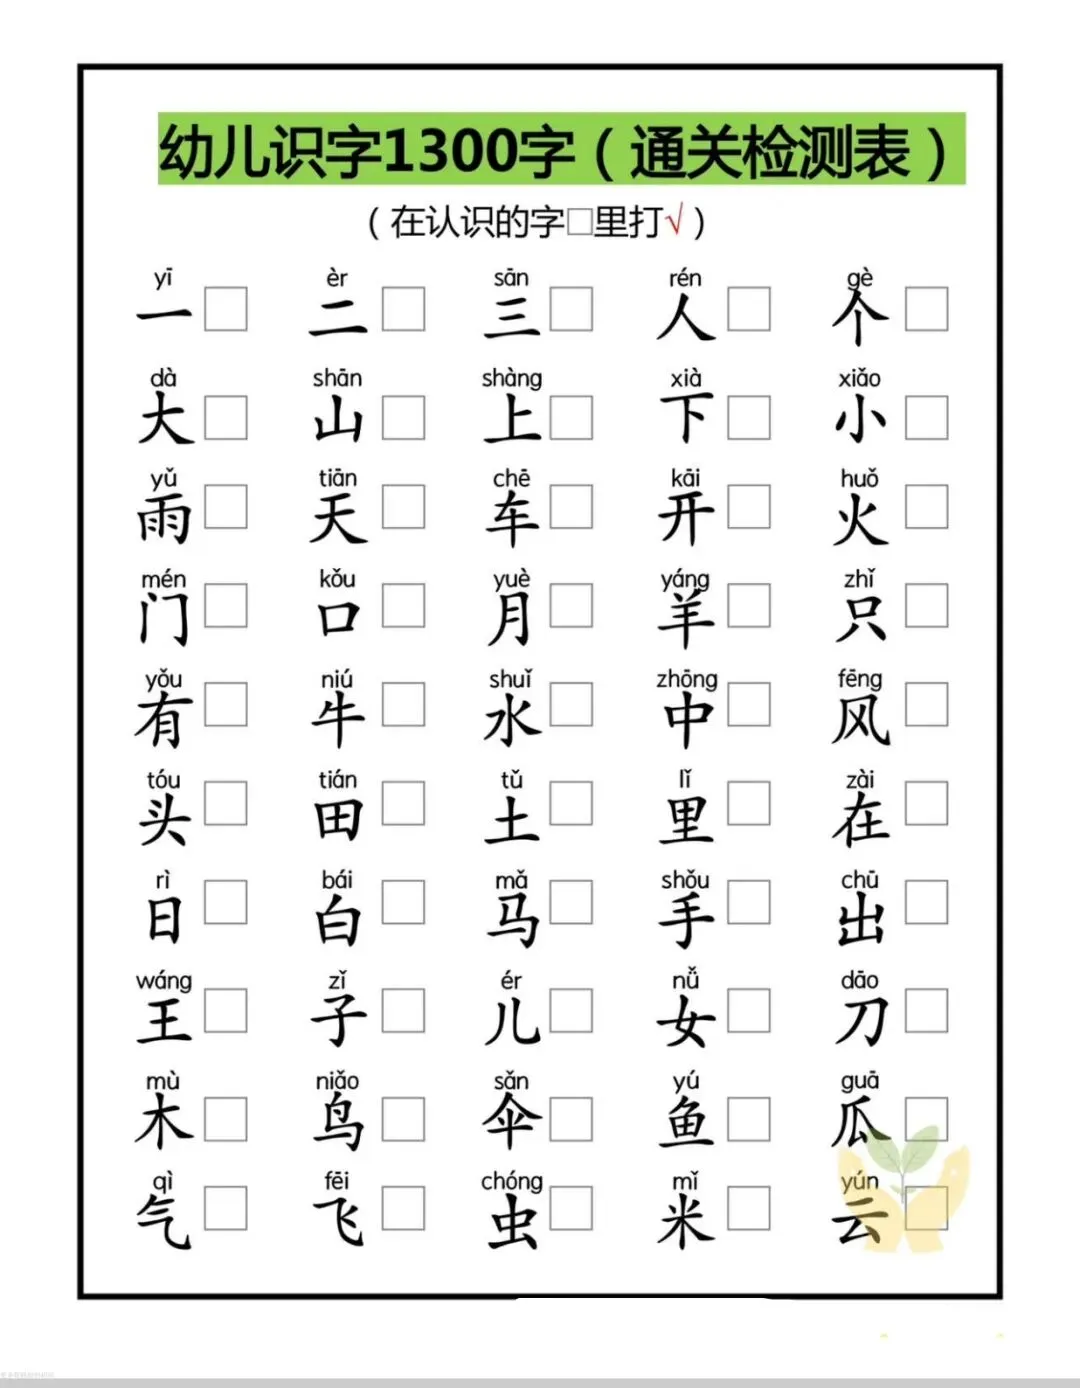 幼儿识字1300字（通关检测表）
（在认识的字□里打√）
yī èr sān rén gè
一 □ 二 □ 三 □ 人 □ 个 □
dà shān shàng xià xiǎo
大 □ 山 □ 上 □ 下 □ 小 □
yǔ tiān chē kāi huǒ
雨 □ 天 □ 车 □ 开 □ 火 □
mén kǒu yuè yáng zhǐ
门 □ 口 □ 月 □ 羊 □ 只 □
yǒu niú shuǐ zhōng fēng
有 □ 牛 □ 水 □ 中 □ 风 □
tóu tián tǔ lǐ zài
头 □ 田 □ 土 □ 里 □ 在 □
rì bái mǎ shǒu chū
日 □ 白 □ 马 □ 手 □ 出 □
wáng zǐ ér nǚ dāo
王 □ 子 □ 儿 □ 女 □ 刀 □
mù niǎo sǎn yú guā
木 □ 鸟 □ 伞 □ 鱼 □ 瓜 □
qì fēi chóng mǐ yún
气 □ 飞 □ 虫 □ 米 □ 云 □